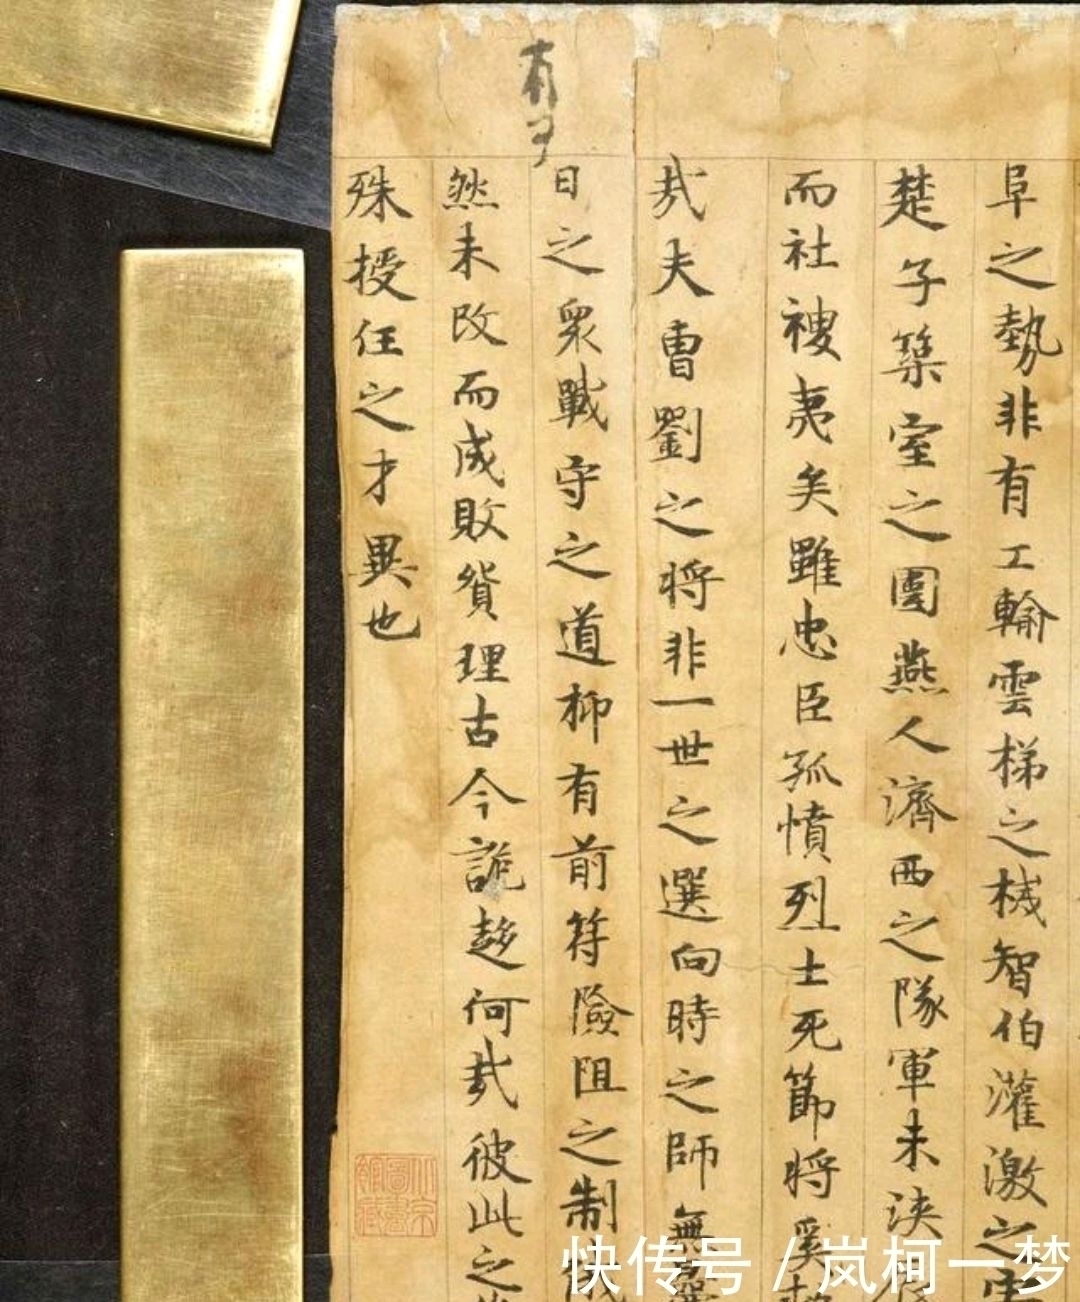 有
阜之勢非有工輸雲梯之械智伯灌激之害
楚子築室之圍燕人濟西之隊軍未浹
而社稷夷矣雖忠臣孤憤烈士死節將奚
㢤夫曹劉之將非一世之選向時之師無
日之眾戰守之道抑有前符險阻之制俄
然未改而成敗貿理古今詭趍何㢤彼此之
殊授任之才異也
北京圖書館藏
快传号/岚柯一梦